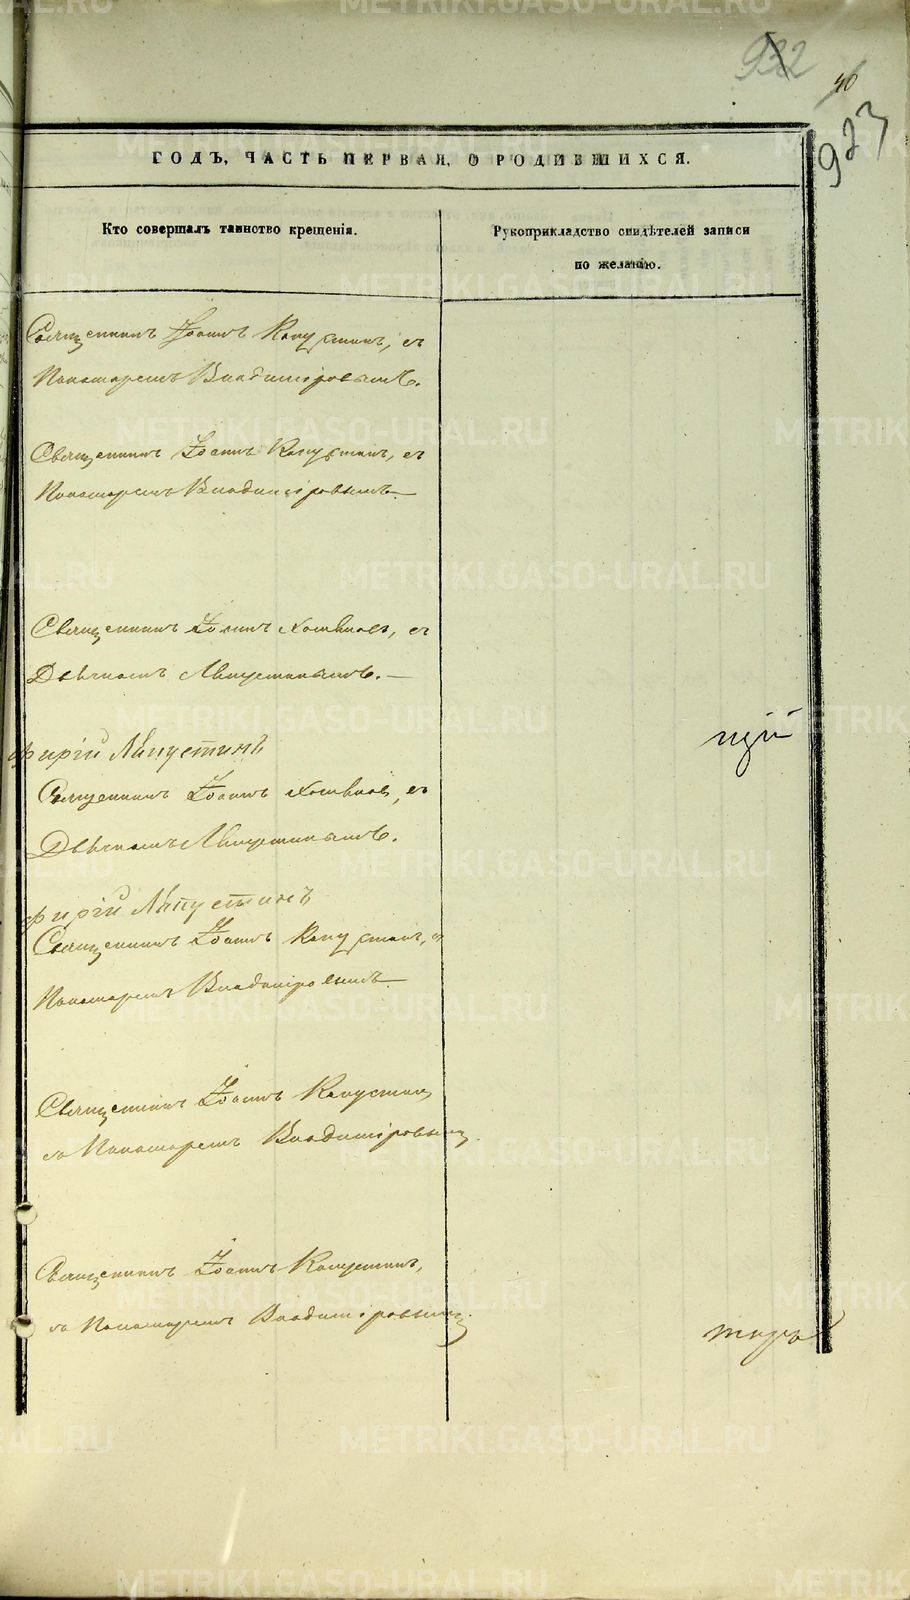 932
40
923
ГОДЪ, ЧАСТЬ ПЕРВАЯ, О РОДИВШИХСЯ.
Кто совершалъ таинство крещенія.
Рукоприкладство свидѣтелей записи
по желанію.
Священникъ Іоаннъ Капустинъ, съ
Пономаремъ Владиміровымъ.
Священникъ Іоаннъ Капустинъ, съ
Пономаремъ Владиміровымъ
Священникъ Іоаннъ съ
Дьячкомъ
щій
фирій
Священникъ Іоаннъ съ
Дьячкомъ
фирій
Священникъ Іоаннъ Капустинъ, съ
Пономаремъ Владиміровымъ
Священникъ Іоаннъ Капустинъ
съ Пономаремъ Владиміровымъ.
Священникъ Іоаннъ Капустинъ,
съ Пономаремъ Владиміровымъ.
METRIKI.GASO-URAL.RU